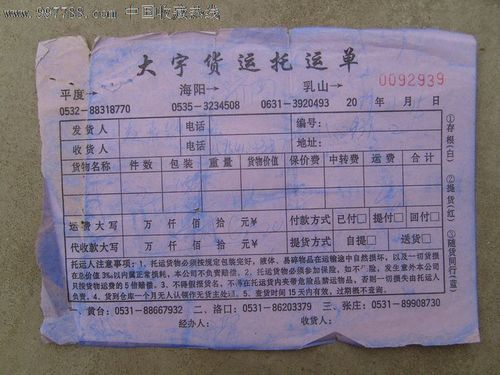 www.997788.com 中国收藏热线
大宇货运托运单
平度→ 海阳→ 乳山→ 0092939
0532-88318770 0535-3234508 0631-3920493 20 年 月 日
发货人 电话 编号:
收货人 电话 地址:
货物名称 件数 包装 重量 货物价值 保价费 中转费 运费 合计
运费大写 万 仟 佰 拾 元¥ 付款方式 已付□ 提付□ 回付□
代收款大写 万 仟 佰 拾 元¥ 提货方式 自提□ 送货□
托运人注意事项:1、托运货物必须按规定包装完好,液体、易碎物品在运输途中自然损坏,以及一切货损
在总价值3%以内属正常损耗,本公司不负责赔偿。2、托运货物必须参加保险,如不保险,发生意外本公司
只按货物运费的5倍赔偿。3、不得假报货名,不得在托运货内夹带危险品牌运物品,否则一切损失由托运人
负责。4、货到仓库一个月无人认领作无货主处理。5、查货时间15天内有效,过期概不查询。
一、黄台:0531-88667932 二、洛口:0531-86203379 三、张庄:0531-89908730
经办人: 收货人:
①存根(白) ②提货(红) ③随货同行(蓝)